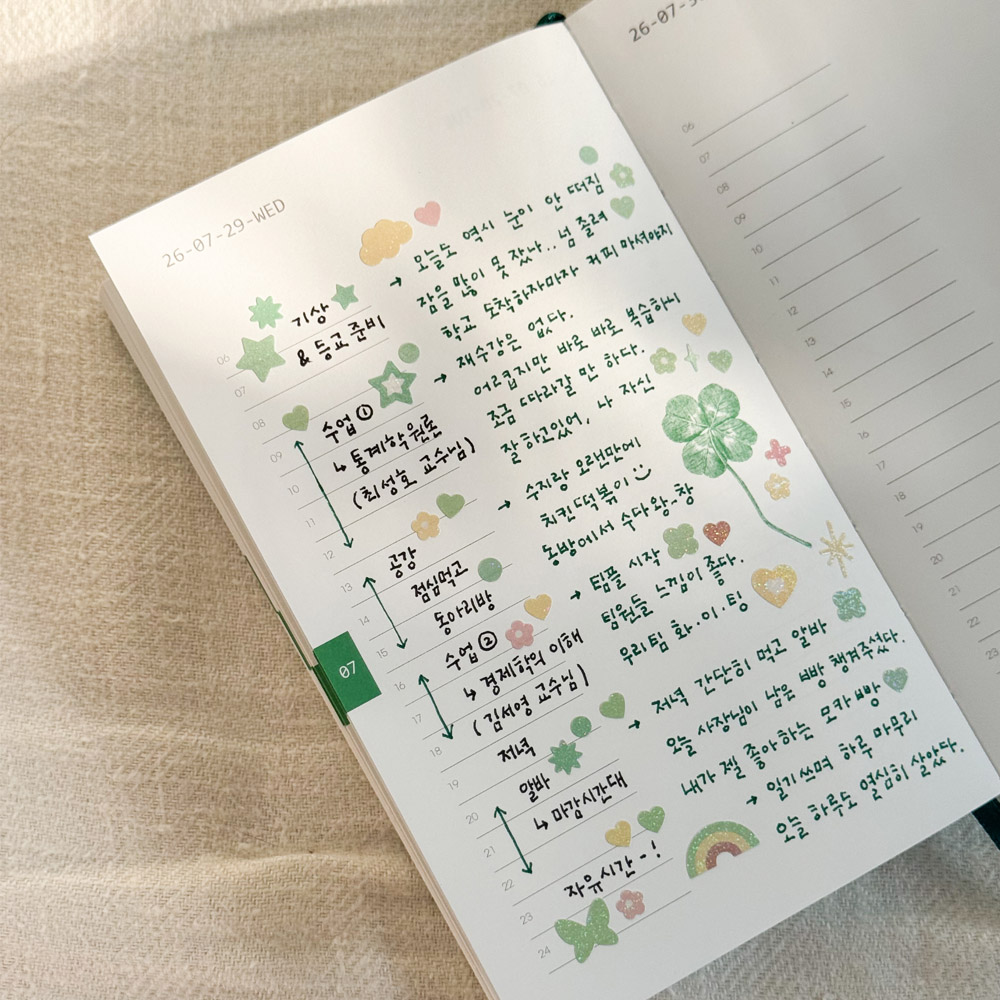 26-07-29-WED
기상
& 등교 준비
→ 오늘도 역시 눈이 안 떠짐
잠을 많이 못 잤나.. 넘 졸려
학교 도착하자마자 커피 마셔야지
수업 ①
↳ 통계학원론
(최성호 교수님)
→ 재수강은 없다.
어렵지만 바로 바로 복습하니
조금 따라갈 만 하다.
잘하고있어, 나 자신
공강
점심먹고
동아리방
→ 수지랑 오랜만에
치킨떡볶이
동방에서 수다왕.창
수업 ②
↳ 경제학의 이해
(김서영 교수님)
→ 팀플 시작
팀원들 느낌이 좋다.
우리팀 화·이·팅
저녁
알바
↳ 마감시간대
→ 저녁 간단히 먹고 알바
오늘 사장님이 남은 빵 챙겨주셨다.
내가 젤 좋아하는 모카빵
자유시간-!
→ 일기쓰며 하루 마무리
오늘 하루도 열심히 살았다.
06
07
08
09
10
11
12
13
14
15
16
17
18
19
20
21
22
23
24
07
06
07
08
09
10
11
12
13
14
15
16
17
18
19
20
21
22
23